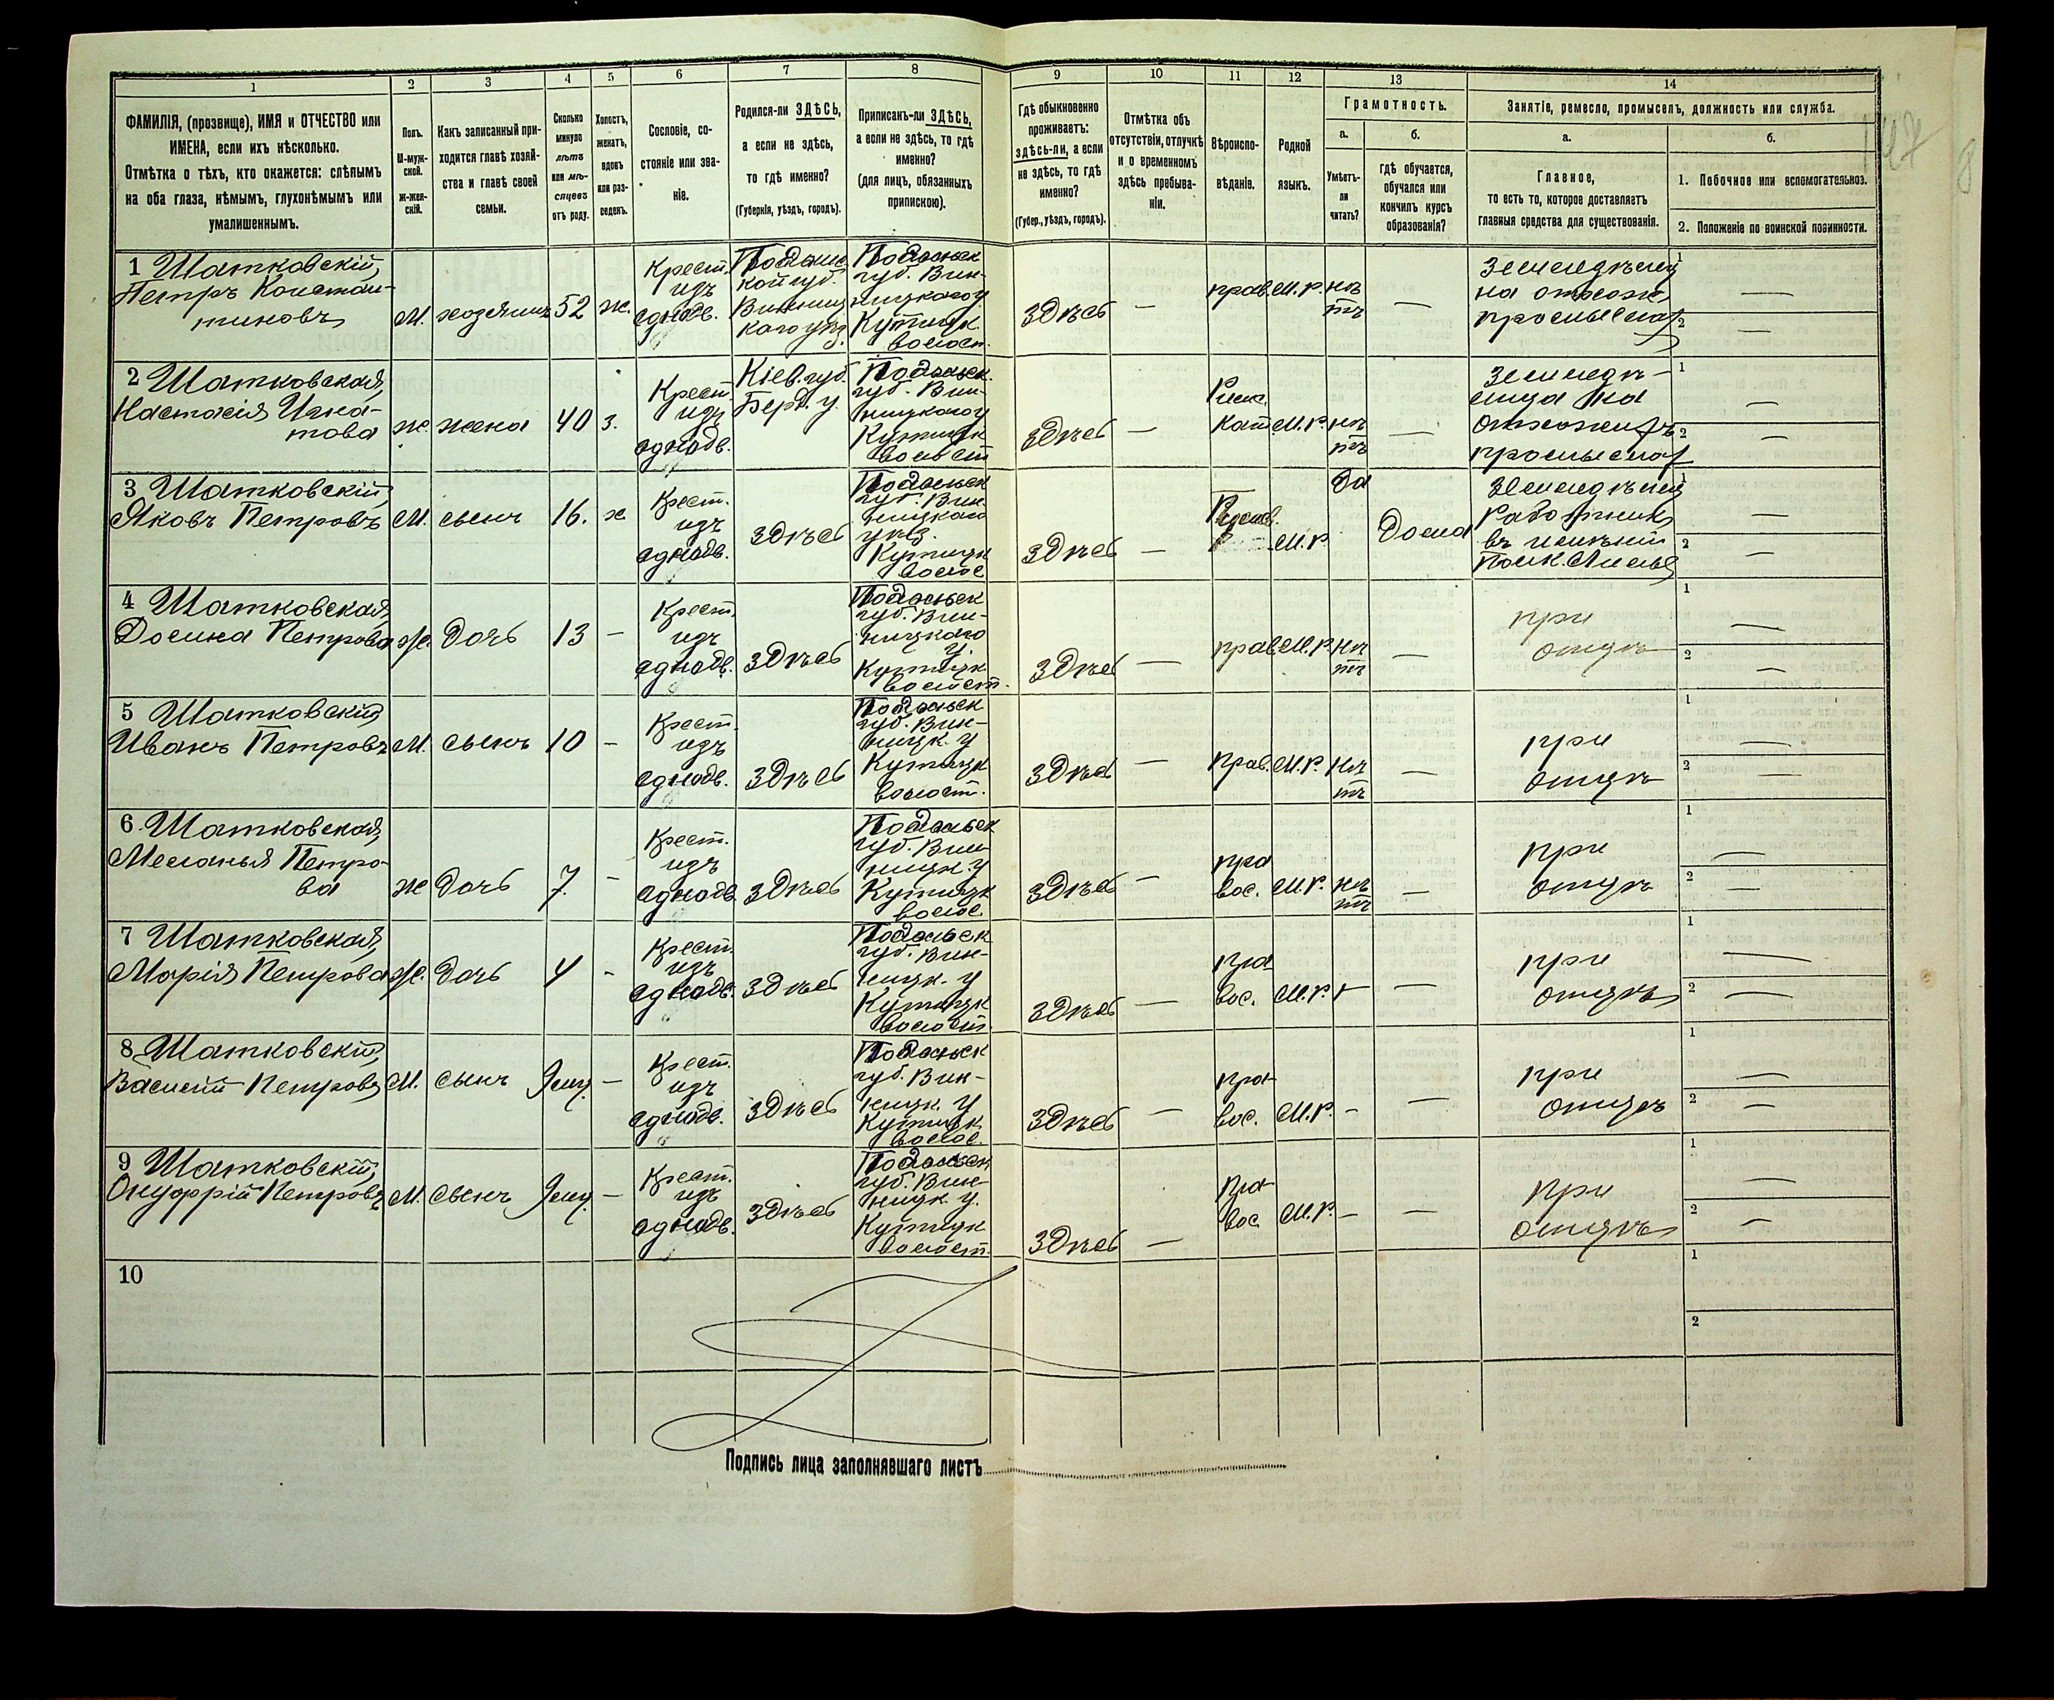 1 2 3 4 5 6 7 8 9 10 11 12 13 14
ФАМИЛІЯ, (прозвище), ИМЯ и ОТЧЕСТВО или
ИМЕНА, если ихъ нѣсколько.
Отмѣтка о тѣхъ, кто окажется: слѣпымъ
на оба глаза, нѣмымъ, глухонѣмымъ или
умалишеннымъ.
Полъ.
М-муж-
ской.
Ж-жен-
скій.
Какъ записанный при-
ходится главѣ хозяй-
ства и главѣ своей
семьи.
Сколько
минуло
лѣтъ
или мѣ-
сяцевъ
отъ роду.
Холостъ,
женатъ,
вдовъ
или раз-
веденъ.
Сословіе, со-
стояніе или зва-
ніе.
Родился-ли ЗДѢСЬ,
а если не здѣсь,
то гдѣ именно?
(Губернія, уѣздъ, городъ).
Приписанъ-ли ЗДѢСЬ,
а если не здѣсь, то гдѣ
именно?
(для лицъ, обязанныхъ
припискою).
Гдѣ обыкновенно
проживаетъ:
здѣсь-ли, а если
не здѣсь, то гдѣ
именно?
(Губер., уѣздъ, городъ).
Отмѣтка объ
отсутствіи, отлучкѣ
и о временномъ
здѣсь пребыва-
ніи.
Вѣроиспо-
вѣданіе.
Родной
языкъ.
Грамотность.
а.
Умѣетъ-
ли
читать?
б.
гдѣ обучается,
обучался или
кончилъ курсъ
образованія?
Занятіе, ремесло, промыселъ, должность или служба.
а.
Главное,
то есть то, которое доставляетъ
главныя средства для существованія.
б.
1. Побочное или вспомогательное.
2. Положеніе по воинской повинности.
147
8
1 Шатковскій,
Петръ Констан-
тиновъ
М.
хозяинъ
52
ж.
Крест.
изъ
однодв.
Подольс
кой губ.
Винниц
каго уѣз.
Подольск
губ. Вин-
ницкаго у
Кутищк
волост.
Здѣсь
—
прав.
М. р.
нѣ
тъ
—
на отхож
промыслах
1 —
2 —
2 Шатковская,
Настасія Игна-
това
ж.
жена
40
з.
Крест.
изъ
однодв.
Кіев. губ.
Берд. у.
Подольск.
губ. Вин-
ницкаго у
Кутищк
волост
Здѣсь
—
Римс.
Кат.
М. р.
нѣ
тъ
—
Земледѣ-
лица на
отхожихъ
промыслах
1 —
2 —
3 Шатковскій,
Яковъ Петровъ
М.
сынъ
16.
х
Крест.
изъ
однодв.
Здѣсь
Подольск
губ. Вин.
ницкаго
уѣз.
Кутищк
волос
Здѣсь
—
М. р.
Да
Дома
Работник
въ имѣніи
1 —
2 —
4 Шатковская,
Домна Петрова
Ж.
Дочь
13
—
Крест.
изъ
однодв.
Здѣсь
Подольск
губ. Вин-
ницкаго
у.
Кутищк
волост.
Здѣсь
—
прав.
М. р.
нѣ
тъ
—
при
отцѣ
1 —
2 —
5 Шатковскій
Иванъ Петровъ
М.
сынъ
10
—
Крест.
изъ
однодв.
Здѣсь
Подольск
губ. Вин-
ницк. у
Кутищк
волост.
Здѣсь
—
Прав.
М. р.
нѣ
тъ
—
при
отцѣ
1 —
2 —
6. Шатковская,
Меланья Петро-
ва
ж
Дочь
7.
-
Крест.
изъ
однодв.
Здѣсь
Подольск
губ. Вин
ницк. у
Кутищк
волос.
Здѣсь
—
пра
вос.
М. р.
нѣ
тъ
—
при
отцѣ
1 —
2 —
7 Шатковская,
Марія Петрова
Ж.
Дочь
4
-
Крест.
изъ
однодв.
Здѣсь
Подольск
губ. Вин-
ницк. у
Кутищк
волост
Здѣсь
—
пра
вос.
М. р.
-
—
при
отцѣ
1 —
2 —
8 Шатковскій,
Василій Петровъ
М.
сынъ
—
Крест.
изъ
однодв.
Здѣсь
Подольск
губ. Вин-
ницк. у
Кутищк
волос.
Здѣсь
—
пра
вос.
М. р.
-
—
при
отцѣ
1 —
2 —
9 Шатковскій,
Онуфрій Петровъ
М.
сынъ
—
Крест.
изъ
однодв.
Здѣсь
Подольск
губ. Вин-
ницк у.
Кутищк
волост.
Здѣсь
—
пра
вос
М. р.
—
—
при
отцѣ
1 —
2 —
10
1
2
Подпись лица заполнявшаго листъ